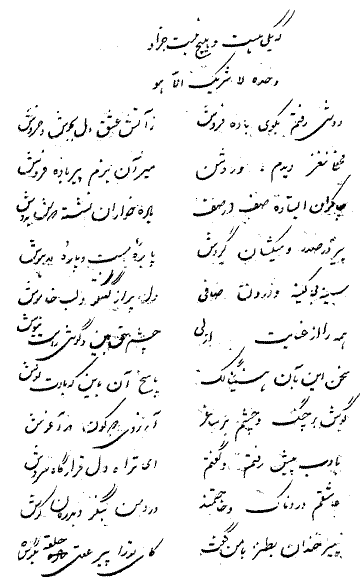 که یکی هست و هیچ نیست جز او
وحده لا شریک الا هو
دوش رفتم بکوی باده فروش ز آتش عشق دل بجوش و خروش
محفلی نغز دیدم و روشن میر آن بزم پیر باده فروش
چاکران ایستاده صف در صف باده خواران نشسته دوش بدوش
پیر در صدر و میکشان گردش پارهٔ مست و پارهٔ مدهوش
سینه بی کینه و درون صافی دل پر از گفتگو و لب خاموش
همه را از عنایت ازلی چشم حق بین و گوش راست نیوش
سخن این بآن هنیئا لک پاسخ آن باین که بادت نوش
گوش بر چنگ و چشم بر ساغر آرزوی دو کون در آغوش
بادب پیش رفتم و گفتم ای ترا دل قرارگاه سروش
عاشقم دردناک و حاجتمند درد من بنگر و بدرمان کوش
پیر خندان بطنز با من گفت کای تو را پیر عقل حلقه بگوش